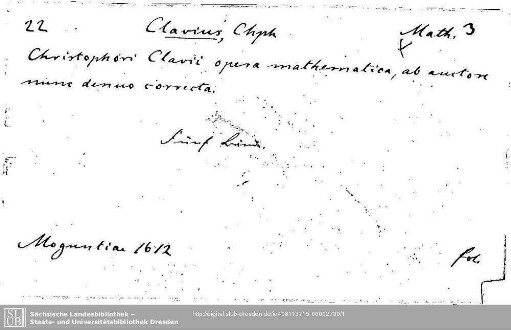 22 Clavius, Chph Math. 3
Christophori Clavii opera mathematica, ab auctore
nunc denuo correcta.
Fünf Bände.
Moguntiae 1612 fol.
Sächsische Landesbibliothek –
Staats- und Universitätsbibliothek Dresden